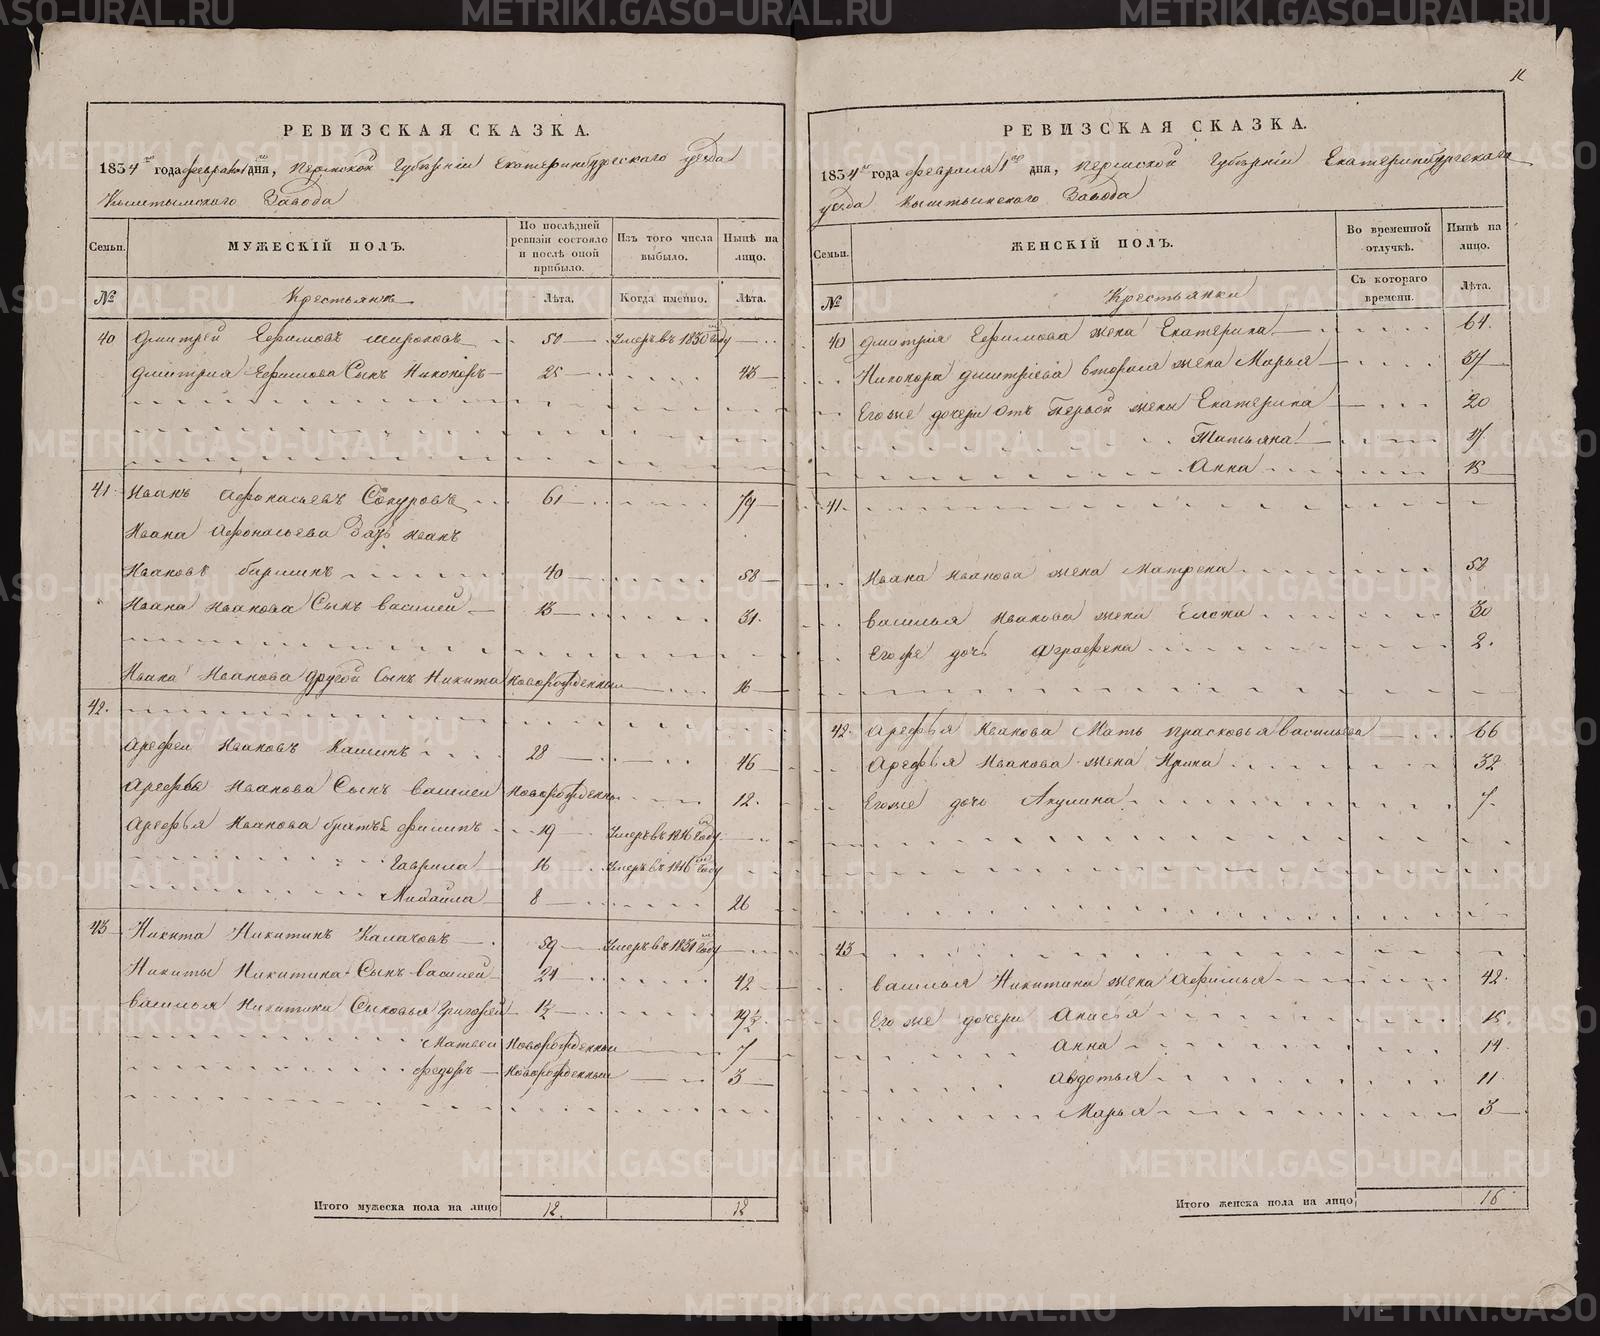 11
РЕВИЗСКАЯ СКАЗКА.
1834го года февраля 1го дня, Пермской Губернiи Екатеринбургскаго уезда
Кыштымскаго Завода
Семьи.
МУЖЕСКIЙ ПОЛЪ.
По послѣдней ревизiи состояло и послѣ оной прибыло.
Изъ того числа выбыло.
Нынѣ на лицо.
№
Крестьянъ
Лѣта.
Когда именно.
Лѣта.
40 Дмитрей Ефимовъ Широковъ 50 Умеръ въ 1830 году
Дмитрия Ефимова Сынъ Никоноръ 25 43
41. Иванъ Афонасьевъ Сокуровъ 61 79
Ивана Афонасьева Зять Иванъ
Ивановъ 40 58
Ивана Иванова Сынъ Василей 13 31.
Ивана Иванова другой Сынъ Никита Новорожденный 16
42.
Арефей Ивановъ Кашинъ 28 46
Арефья Иванова Сынъ Василей Новорожденный 12.
Арефья Иванова братья Филипъ 19 Умеръ въ 1816 году
Гаврила 16 Умеръ въ 1816 году
Михайла 8 26
43 Никита Никитинъ Калачовъ 59 Умеръ въ 1831 году
Никиты Никитина Сынъ Василей 24 42
Василья Никитина Сыновья Григорей 1½ 19½
Матвей Новорожденный 7
Федоръ Новорожденный 3
Итого мужеска пола на лицо 12. 12
РЕВИЗСКАЯ СКАЗКА.
1834го года февраля 1го дня, Пермской Губернiи Екатеринбургскаго
уезда Кыштымскаго Завода
Семьи.
ЖЕНСКIЙ ПОЛЪ.
Во временной отлучкѣ.
Нынѣ на лицо.
№
Крестьянки
Съ котораго времени.
Лѣта.
40 Дмитрия Ефимова жена Екатерина 64.
Никонора Дмитрiева вторая жена Марья 37
Его же дочери отъ первой жены Екатерина 20
Татьяна 17
Анна 15
41.
Ивана Иванова жена Матрена 52
Василья Иванова жена Елена 30
Его же дочь Аграфена 2.
42. Арефья Иванова Мать Прасковья Васильева 66
Арефья Иванова жена Ирина 32
Его же дочь Акулина 7.
43
Василья Никитина жена Афимья 42.
Его же дочери Анисья 15
Анна 14
Авдотья 11
Марья 3
Итого женска пола на лицо 16
METRIKI.GASO-URAL.RU